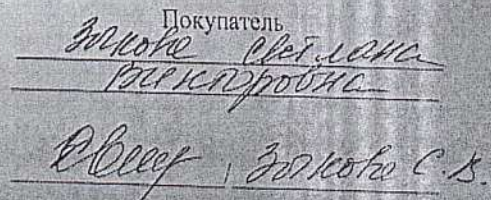 Покупатель
Зыкова Светлана
Викторовна
Зыкова С. В.